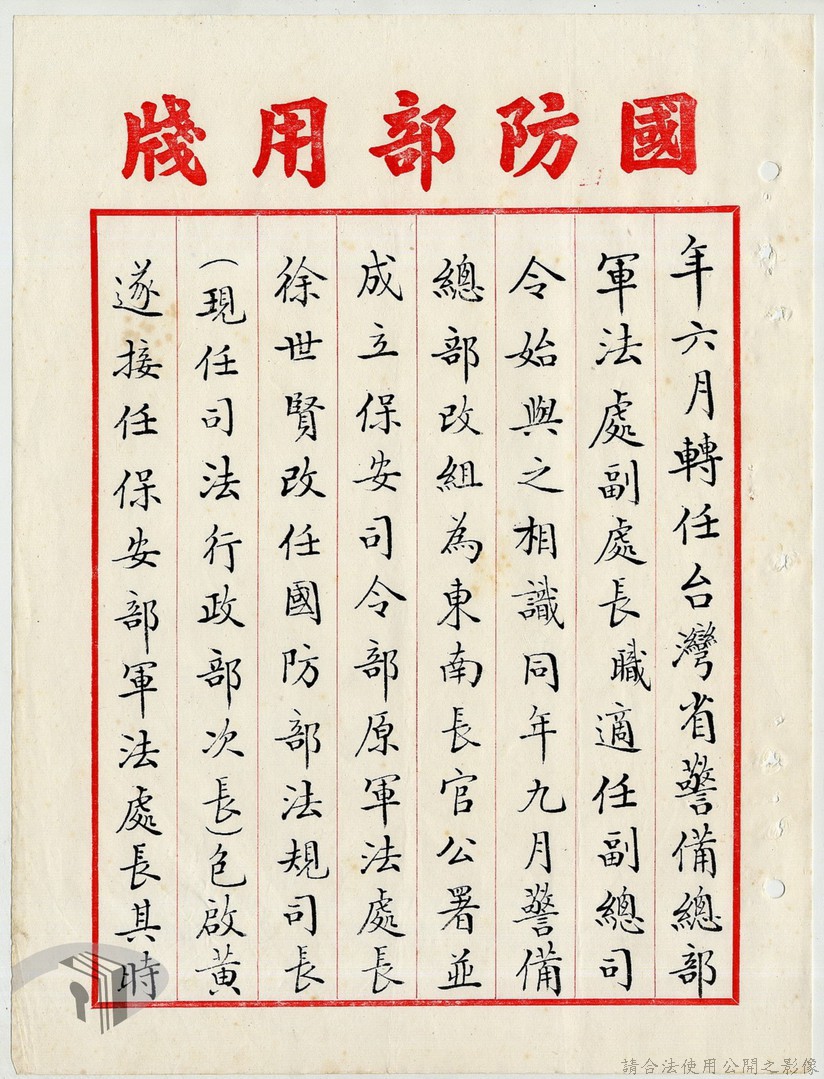 國防部用牋
年六月轉任台灣省警備總部
軍法處副處長職適任副總司
令始與之相識同年九月警備
總部改組為東南長官公署並
成立保安司令部原軍法處長
徐世賢改任國防部法規司長
(現任司法行政部次長)包啟黃
遂接任保安部軍法處長其時
請合法使用公開之影像